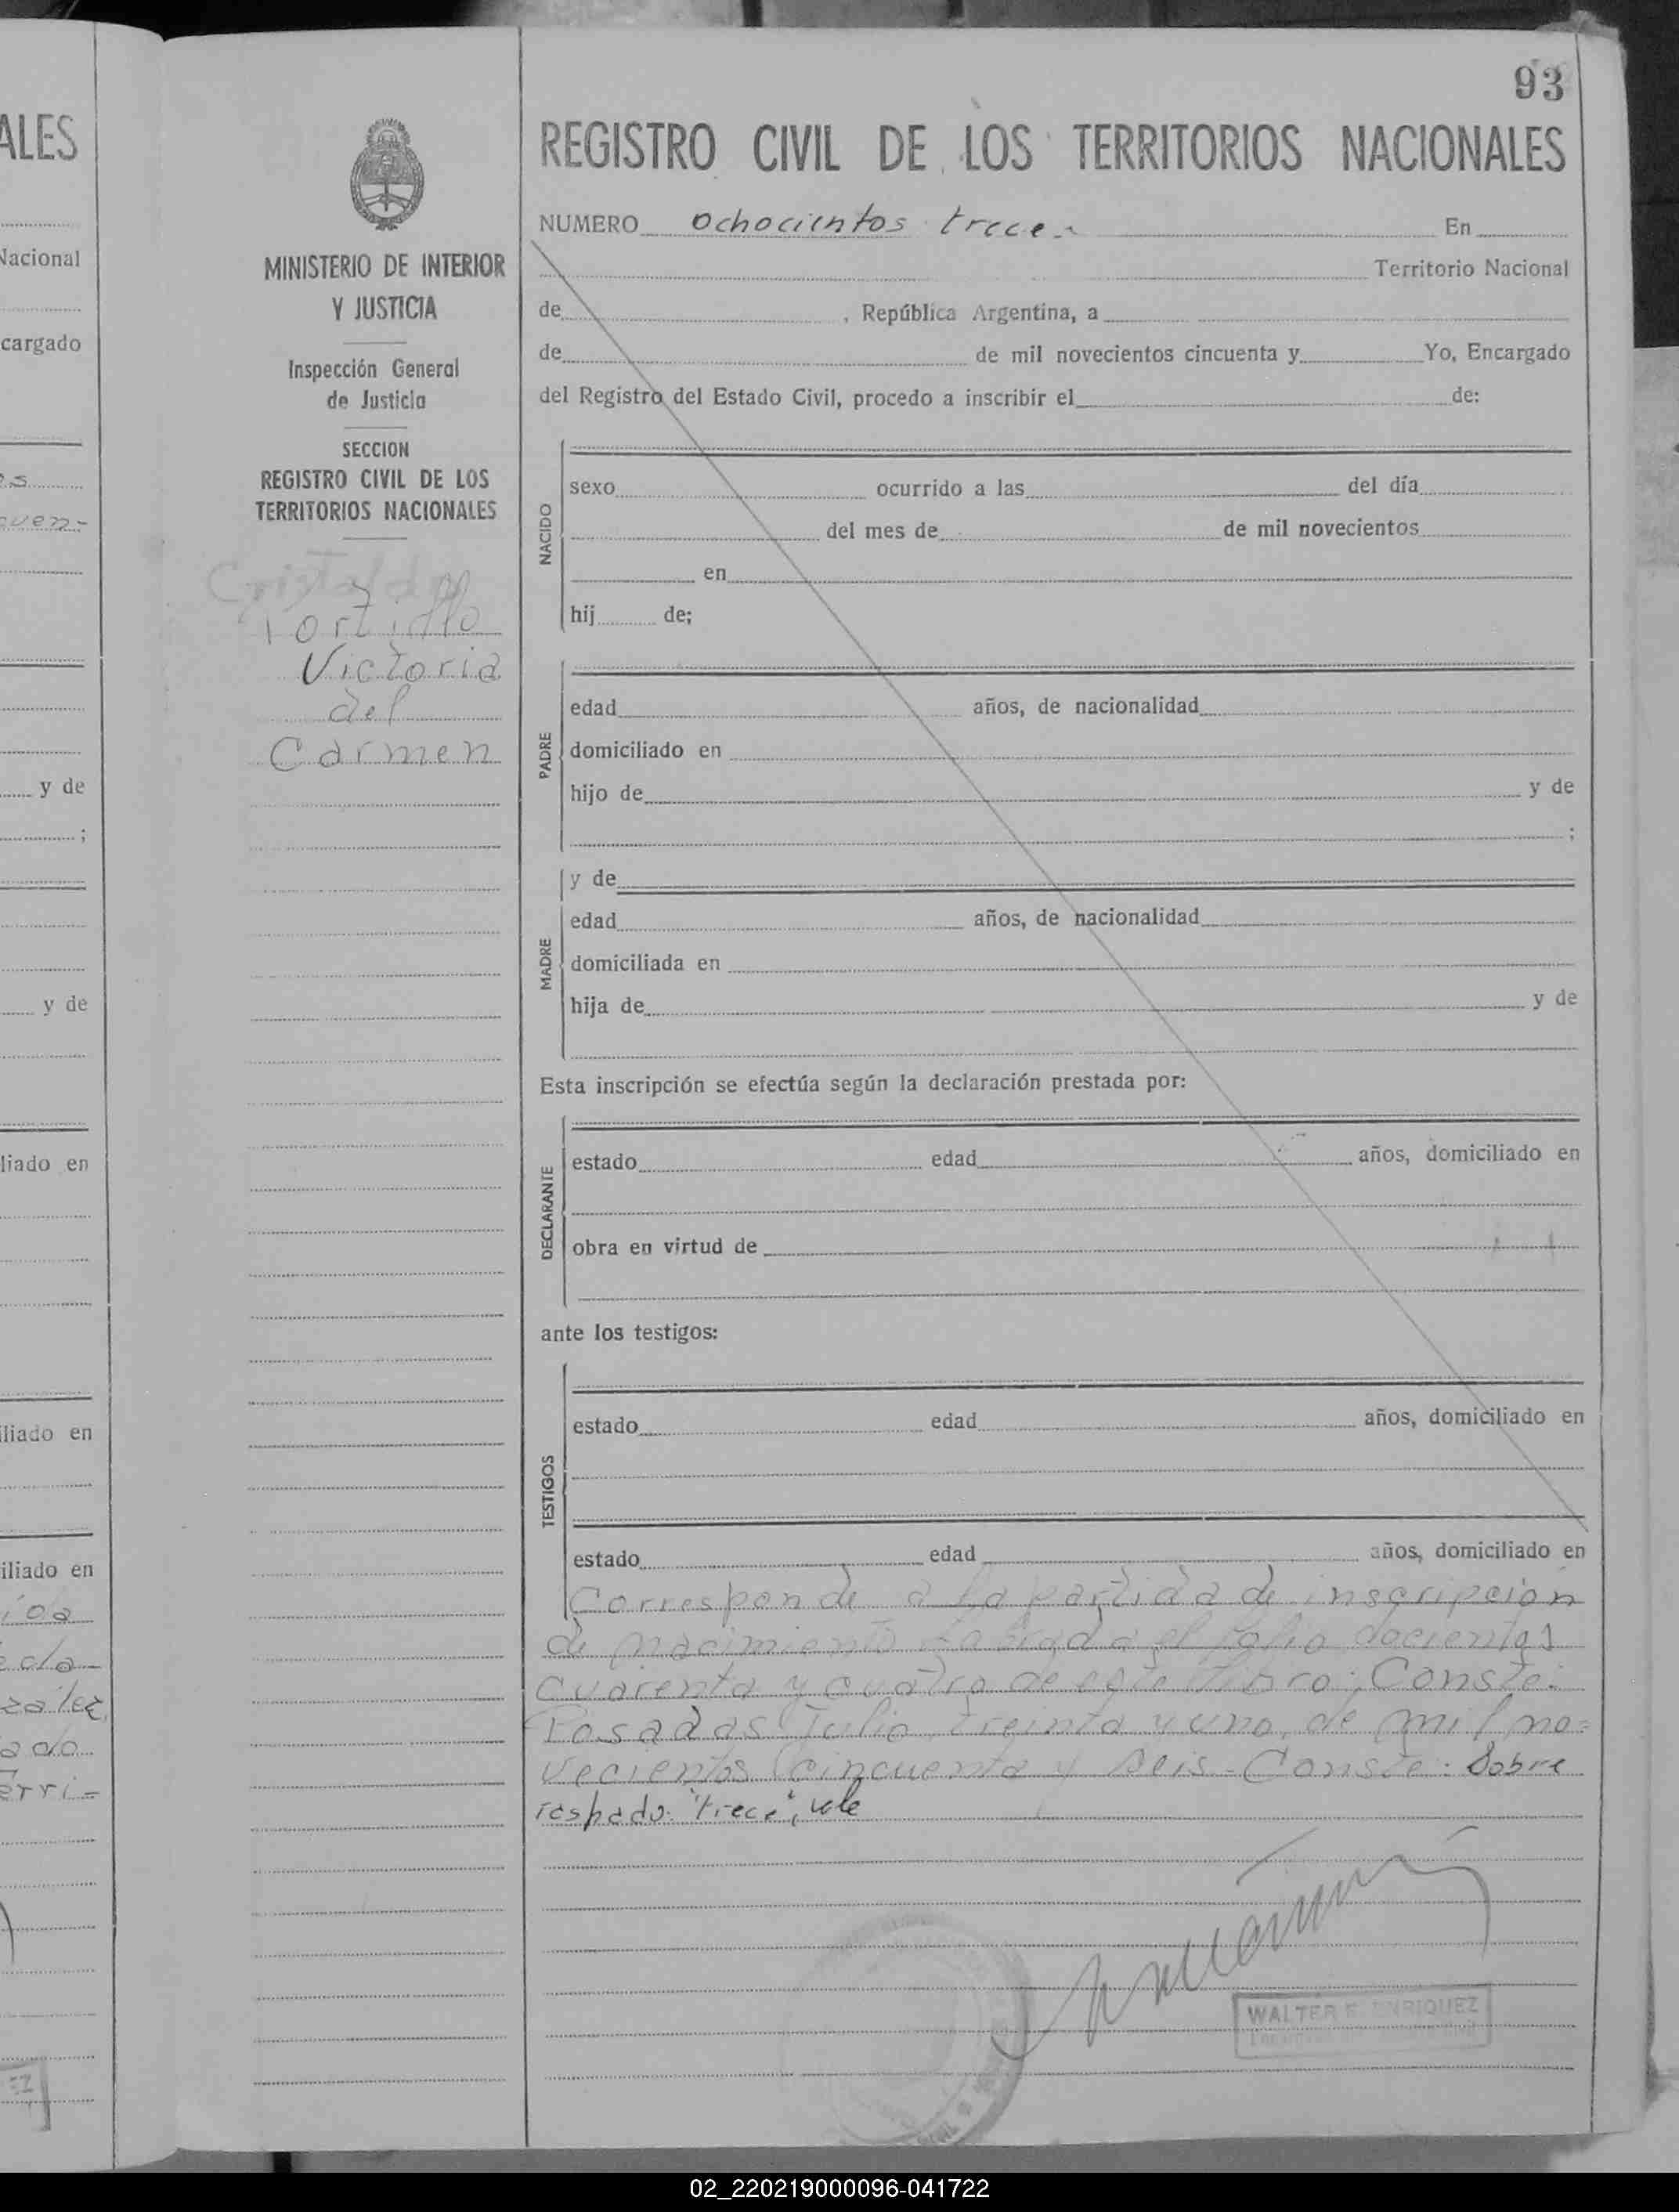 93
REGISTRO CIVIL DE LOS TERRITORIOS NACIONALES
NUMERO ochocientos trece.- En
Territorio Nacional
de , República Argentina, a
de de mil novecientos cincuenta y Yo, Encargado
del Registro del Estado Civil, procedo a inscribir el de:
MINISTERIO DE INTERIOR
Y JUSTICIA
Inspección General
de Justicia
SECCION
REGISTRO CIVIL DE LOS
TERRITORIOS NACIONALES
Victoria
del
Carmen
NACIDO
sexo ocurrido a las del día
del mes de de mil novecientos
en
hij de;
PADRE
edad años, de nacionalidad
domiciliado en
hijo de y de
;
y de
MADRE
edad años, de nacionalidad
domiciliada en
hija de y de
Esta inscripción se efectúa según la declaración prestada por:
DECLARANTE
estado edad años, domiciliado en
obra en virtud de
ante los testigos:
TESTIGOS
estado edad años, domiciliado en
estado edad años, domiciliado en
Corresponde a la partida de inscripción
de nacimiento labrada al folio docientos
cuarenta y cuatro de este libro; Conste:
Posadas Julio, treinta y uno, de mil no-
vecientos cincuenta y seis - Conste: Sobre
raspado: "trece", vale
WALTER E. ENRIQUEZ
ALES
Nacional
cargado
y de
;
y de
liado en
iliado en
iliado en
02_220219000096-041722